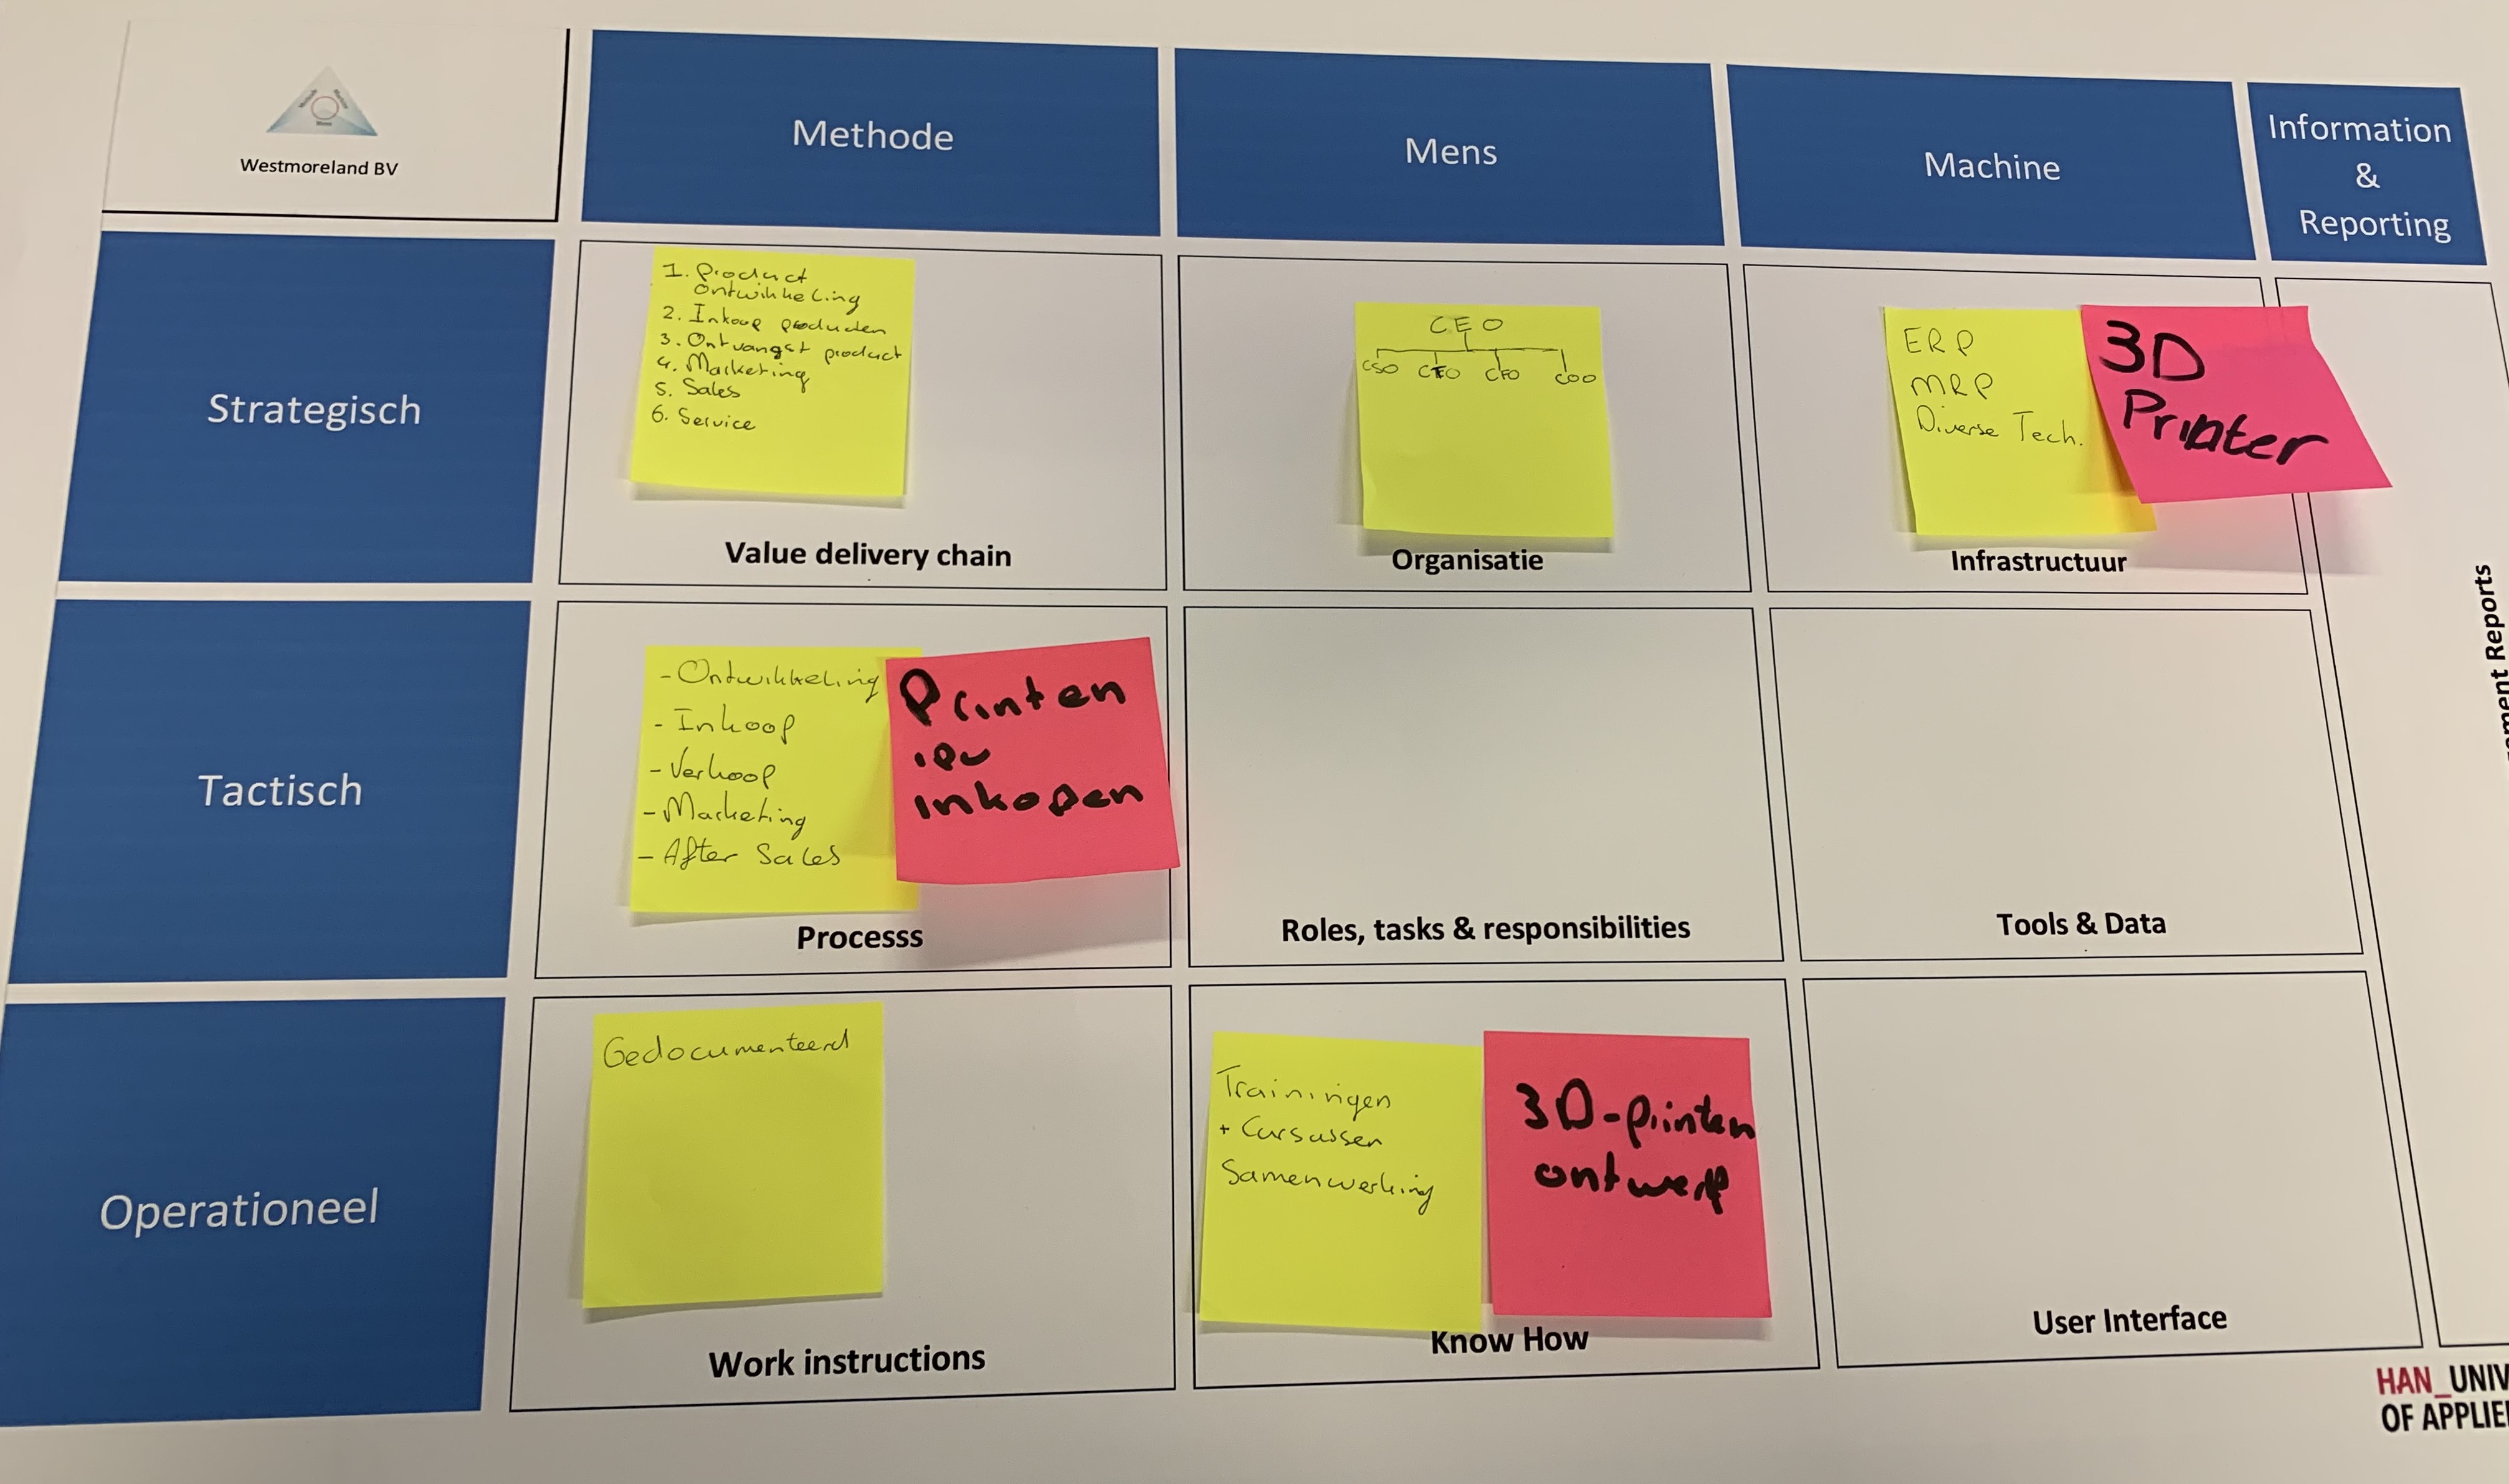 Westmoreland BV
Methode
Mens
Machine
Information
&
Reporting
Strategisch
1. Product
ontwikkeling
2. Inkoop producten
3. Ontvangst product
4. Marketing
5. Sales
6. Service
Value delivery chain
CEO
CSO CTO CFO COO
Organisatie
ERP
MRP
Diverse Tech.
3D
Printer
Infrastructuur
Tactisch
- Ontwikkeling
- Inkoop
- Verkoop
- Marketing
- After Sales
Printen
ipv
inkopen
Processs
Roles, tasks & responsibilities
Tools & Data
ment Reports
Operationeel
Gedocumenteerd
Work instructions
Trainingen
+ Cursussen
Samenwerking
3D-printen
ontwerp
Know How
User Interface
HAN_UNIV
OF APPLIE